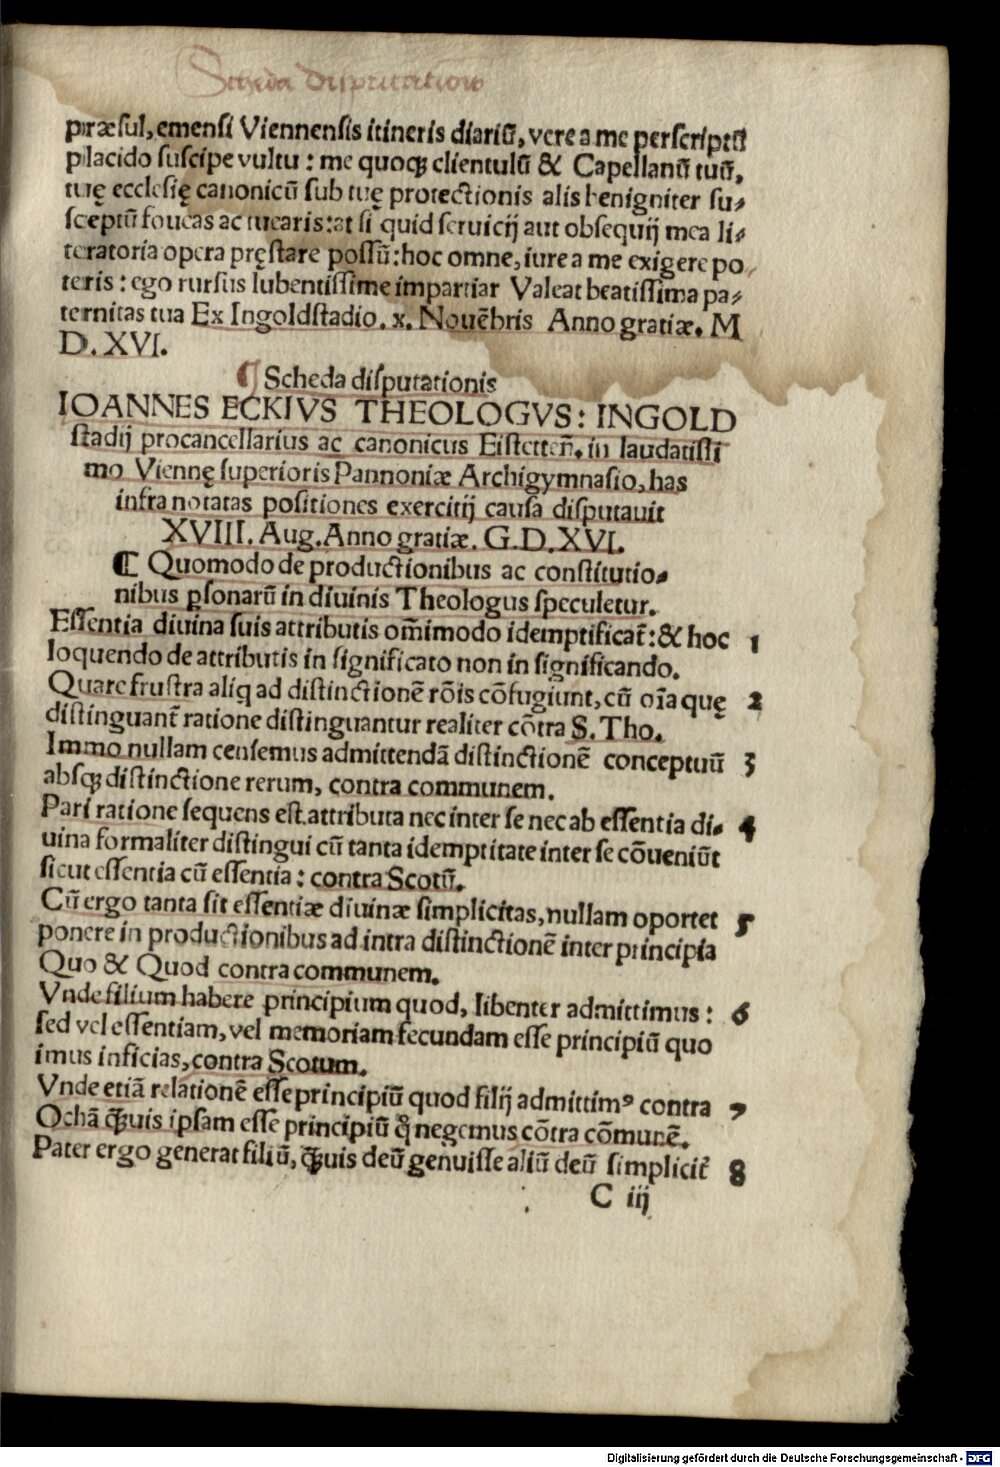 Scheda Disputationis
præsul, emensi Viennensis itineris diariũ, vere a me perscriptũ
placido suscipe vultu : me quoqꝫ clientulũ & Capellanũ tuũ,
tuę ecclesię canonicũ sub tuę protectionis alis benigniter su⸗
sceptũ foueas ac tuearis: at si quid seruicij aut obsequij mea li⸗
teratoria opera pręstare possũ: hoc omne, iure a me exigere po
teris : ego rursus lubentissime impartiar Valeat beatissima pa⸗
ternitas tua Ex Ingoldstadio. x. Nouẽbris Anno gratiæ. M
D. XVI.
¶ Scheda disputationis
IOANNES ECKIVS THEOLOGVS: INGOLD
stadij procancellarius ac canonicus Eistetteñ. in laudatissi
mo Viennę superioris Pannoniæ Archigymnasio, has
infra notatas positiones exercitij causa disputauit
XVIII. Aug. Anno gratiæ. G. D. XVI.
¶ Quomodo de productionibus ac constitutio⸗
nibus ꝑsonarũ in diuinis Theologus speculetur.
Essentia diuina suis attributis om̃imodo idemptificat̃: & hoc 1
loquendo de attributis in significato non in significando.
Quare frustra aliq̣ ad distinctionẽ rõis cõfugiunt, cũ oĩa quę 2
distinguant̃ ratione distinguantur realiter cõtra S. Tho.
Immo nullam censemus admittendã distinctionẽ conceptuũ 3
absqꝫ distinctione rerum, contra communem.
Pari ratione sequens est. attributa nec inter se nec ab essentia di⸗ 4
uina formaliter distingui cũ tanta idemptitate inter se cõueniũt
sicut essentia cũ essentia : contra Scotũ.
Cũ ergo tanta sit essentiæ diuinæ simplicitas, nullam oportet 5
ponere in productionibus ad intra distinctionẽ inter principia
Quo & Quod contra communem.
Vnde filium habere principium quod, libenter admittimus : 6
sed vel essentiam, vel memoriam fecundam esse principiũ quo
imus inficias, contra Scotum.
Vnde etiã relationẽ esse principiũ quod filij admittimꝰ contra 7
Ochã ꝙ̃uis ipsam esse principiũ q̊ negemus cõtra cõmunẽ.
Pater ergo generat filiũ, ꝙ̃uis deũ genuisse aliũ deũ simplicit̃ 8
C iij
Digitalisierung gefördert durch die Deutsche Forschungsgemeinschaft - DFG